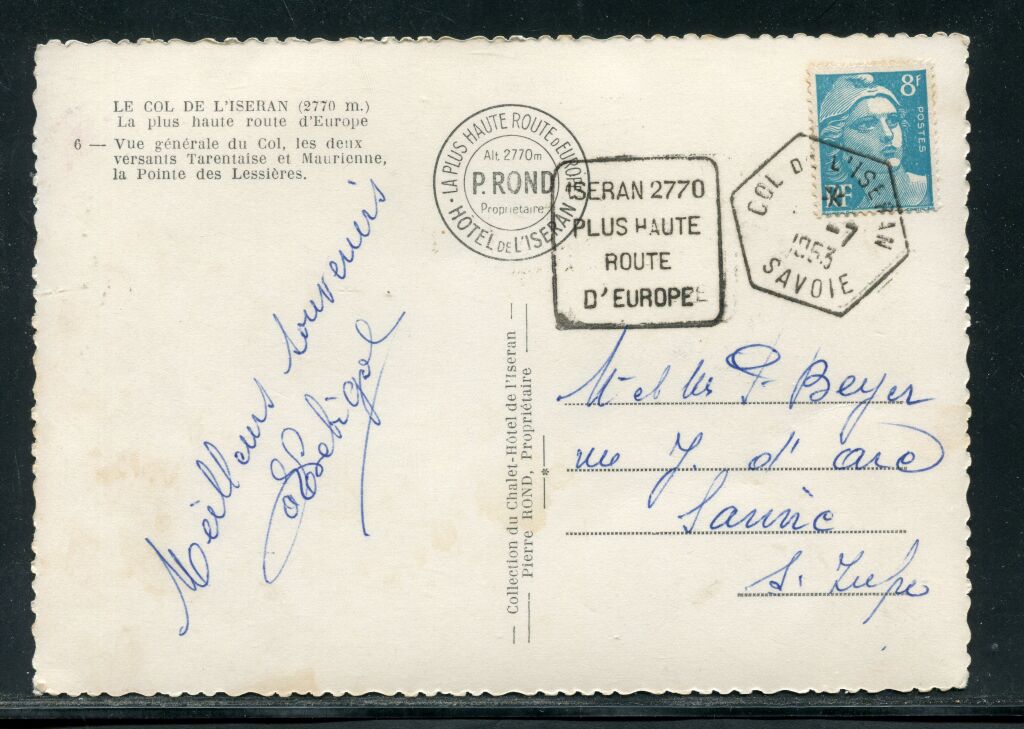 LE COL DE L'ISERAN (2770 m.)
La plus haute route d'Europe
6 — Vue générale du Col, les deux
versants Tarentaise et Maurienne,
la Pointe des Lessières.
LA PLUS HAUTE ROUTE D'EUROPE
Alt. 2770m
P. ROND
Propriétaire
HÔTEL DE L'ISERAN
ISERAN 2770
PLUS HAUTE
ROUTE
D'EUROPE
8F
POSTES
RF
COL DE L'ISERAN
-7
1953
SAVOIE
Meilleurs souvenirs
— Collection du Chalet-Hôtel de l'Iseran —
Pierre ROND, Propriétaire
M et Me P. Beyer
rue J. d'arc
Sanvic
S. Infre